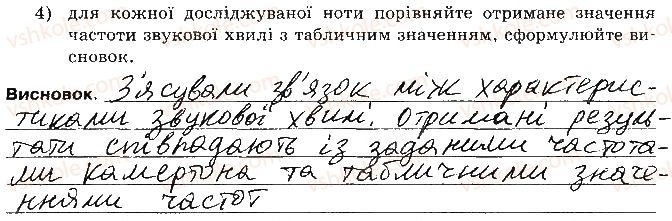 4) для кожної досліджуваної ноти порівняйте отримане значення
частоти звукової хвилі з табличним значенням, сформулюйте ви-
сновок.
Висновок. З'ясували зв'язок між характерис-
тиками звукової хвилі. Отримані резуль-
тати співпадають із заданими частота-
ми камертона та табличними значе-
ннями частот